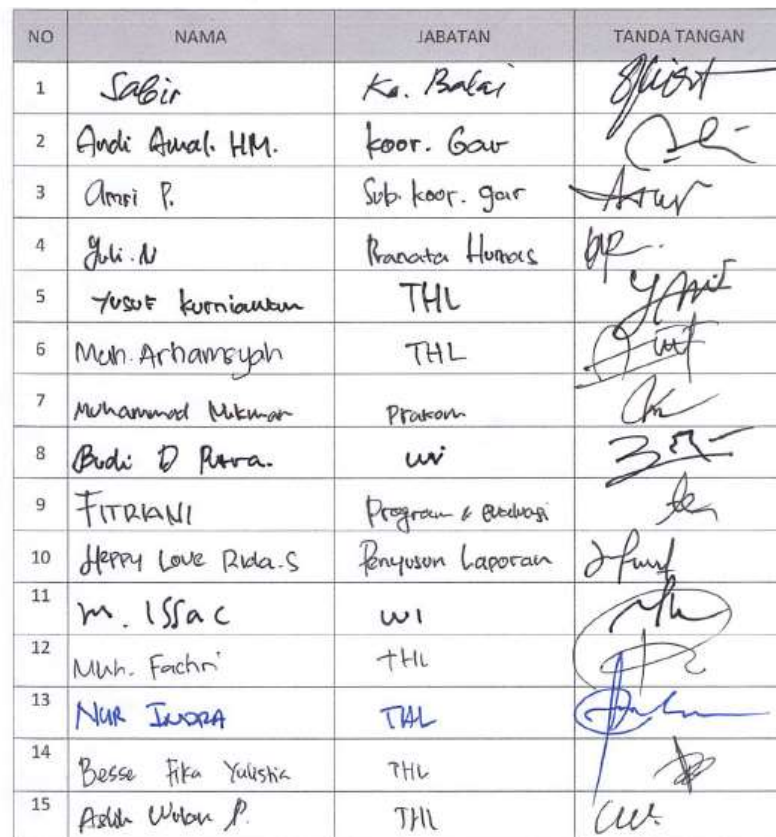 NO NAMA JABATAN TANDA TANGAN
1 Sabir Ka. Balai
2 Andi Amal. HM. Koor. Gar
3 Amri P. Sub. koor. gar
4 Yuli. N Pranata Humas
5 Yusuf Kurniawan THL
6 Muh. Arhamsyah THL
7 Muhammad Prakom
8 Budi D Putra. WI
9 FITRIANI Program & evaluasi
10 Heppy Love Rida. S Penyusun Laporan
11 M. Issac WI
12 Muh. Fachri THL
13 NUR INDRA THL
14 Besse Fika Yulistia THL
15 Wulan P. THL